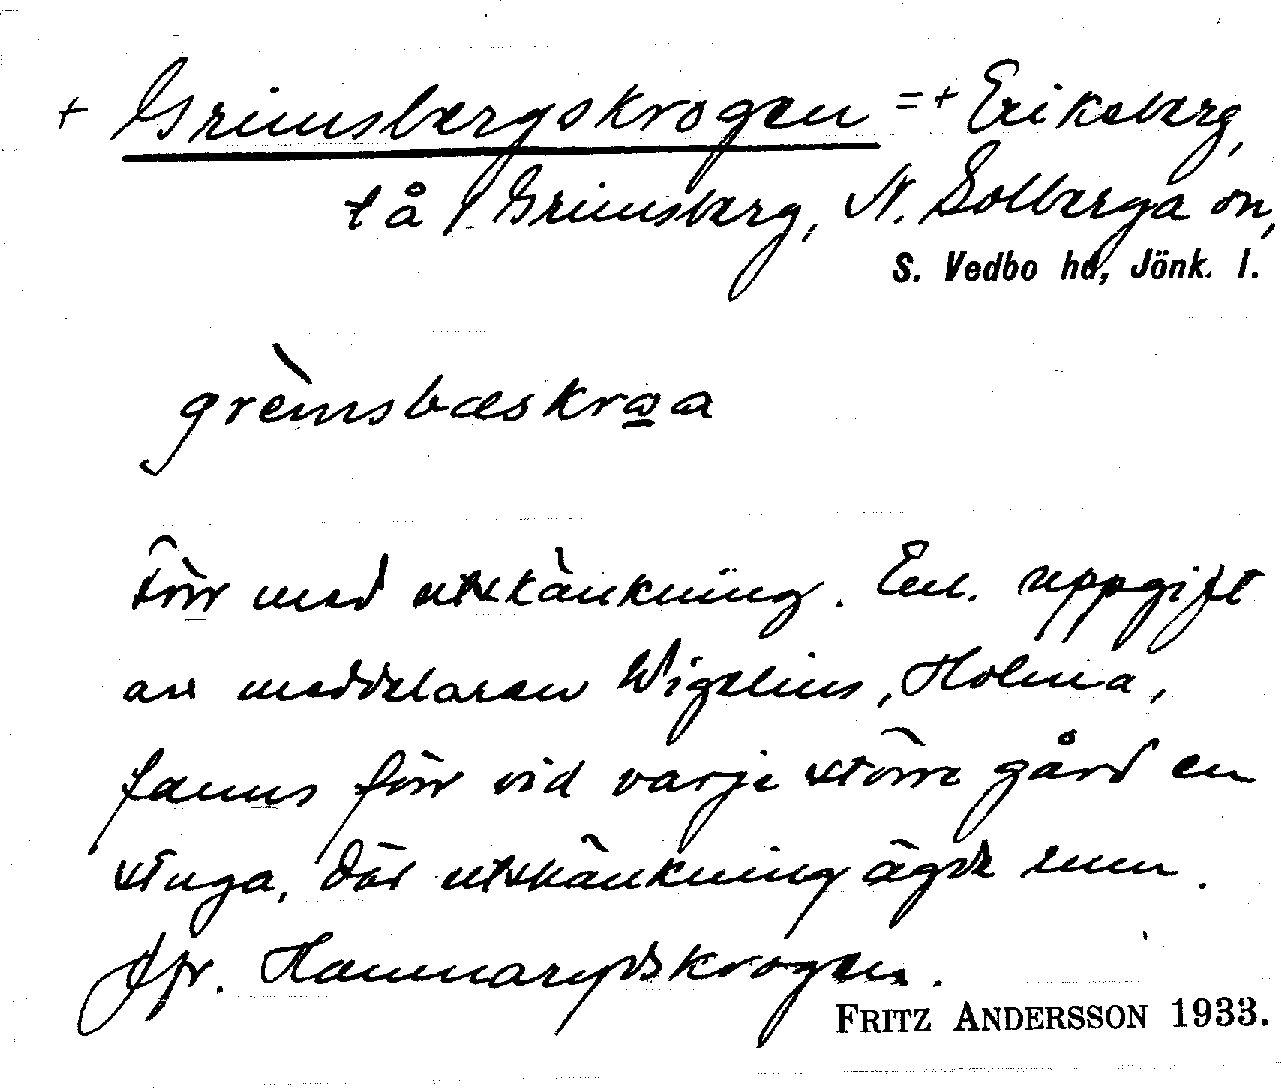 + Grimsbergskrogen = + Eriksberg,
tå / Grimsberg, N. Solberga sn,
S. Vedbo hd, Jönk. l.
grèmsbæskrɷa
Torp med utskänkning. Enl. uppgift
av meddelaren Wigelius, Holma,
fanns förr vid varje större gård en
stuga, där utskänkning ägde rum.
Jfr. Hammarydskrogen.
FRITZ ANDERSSON 1933.